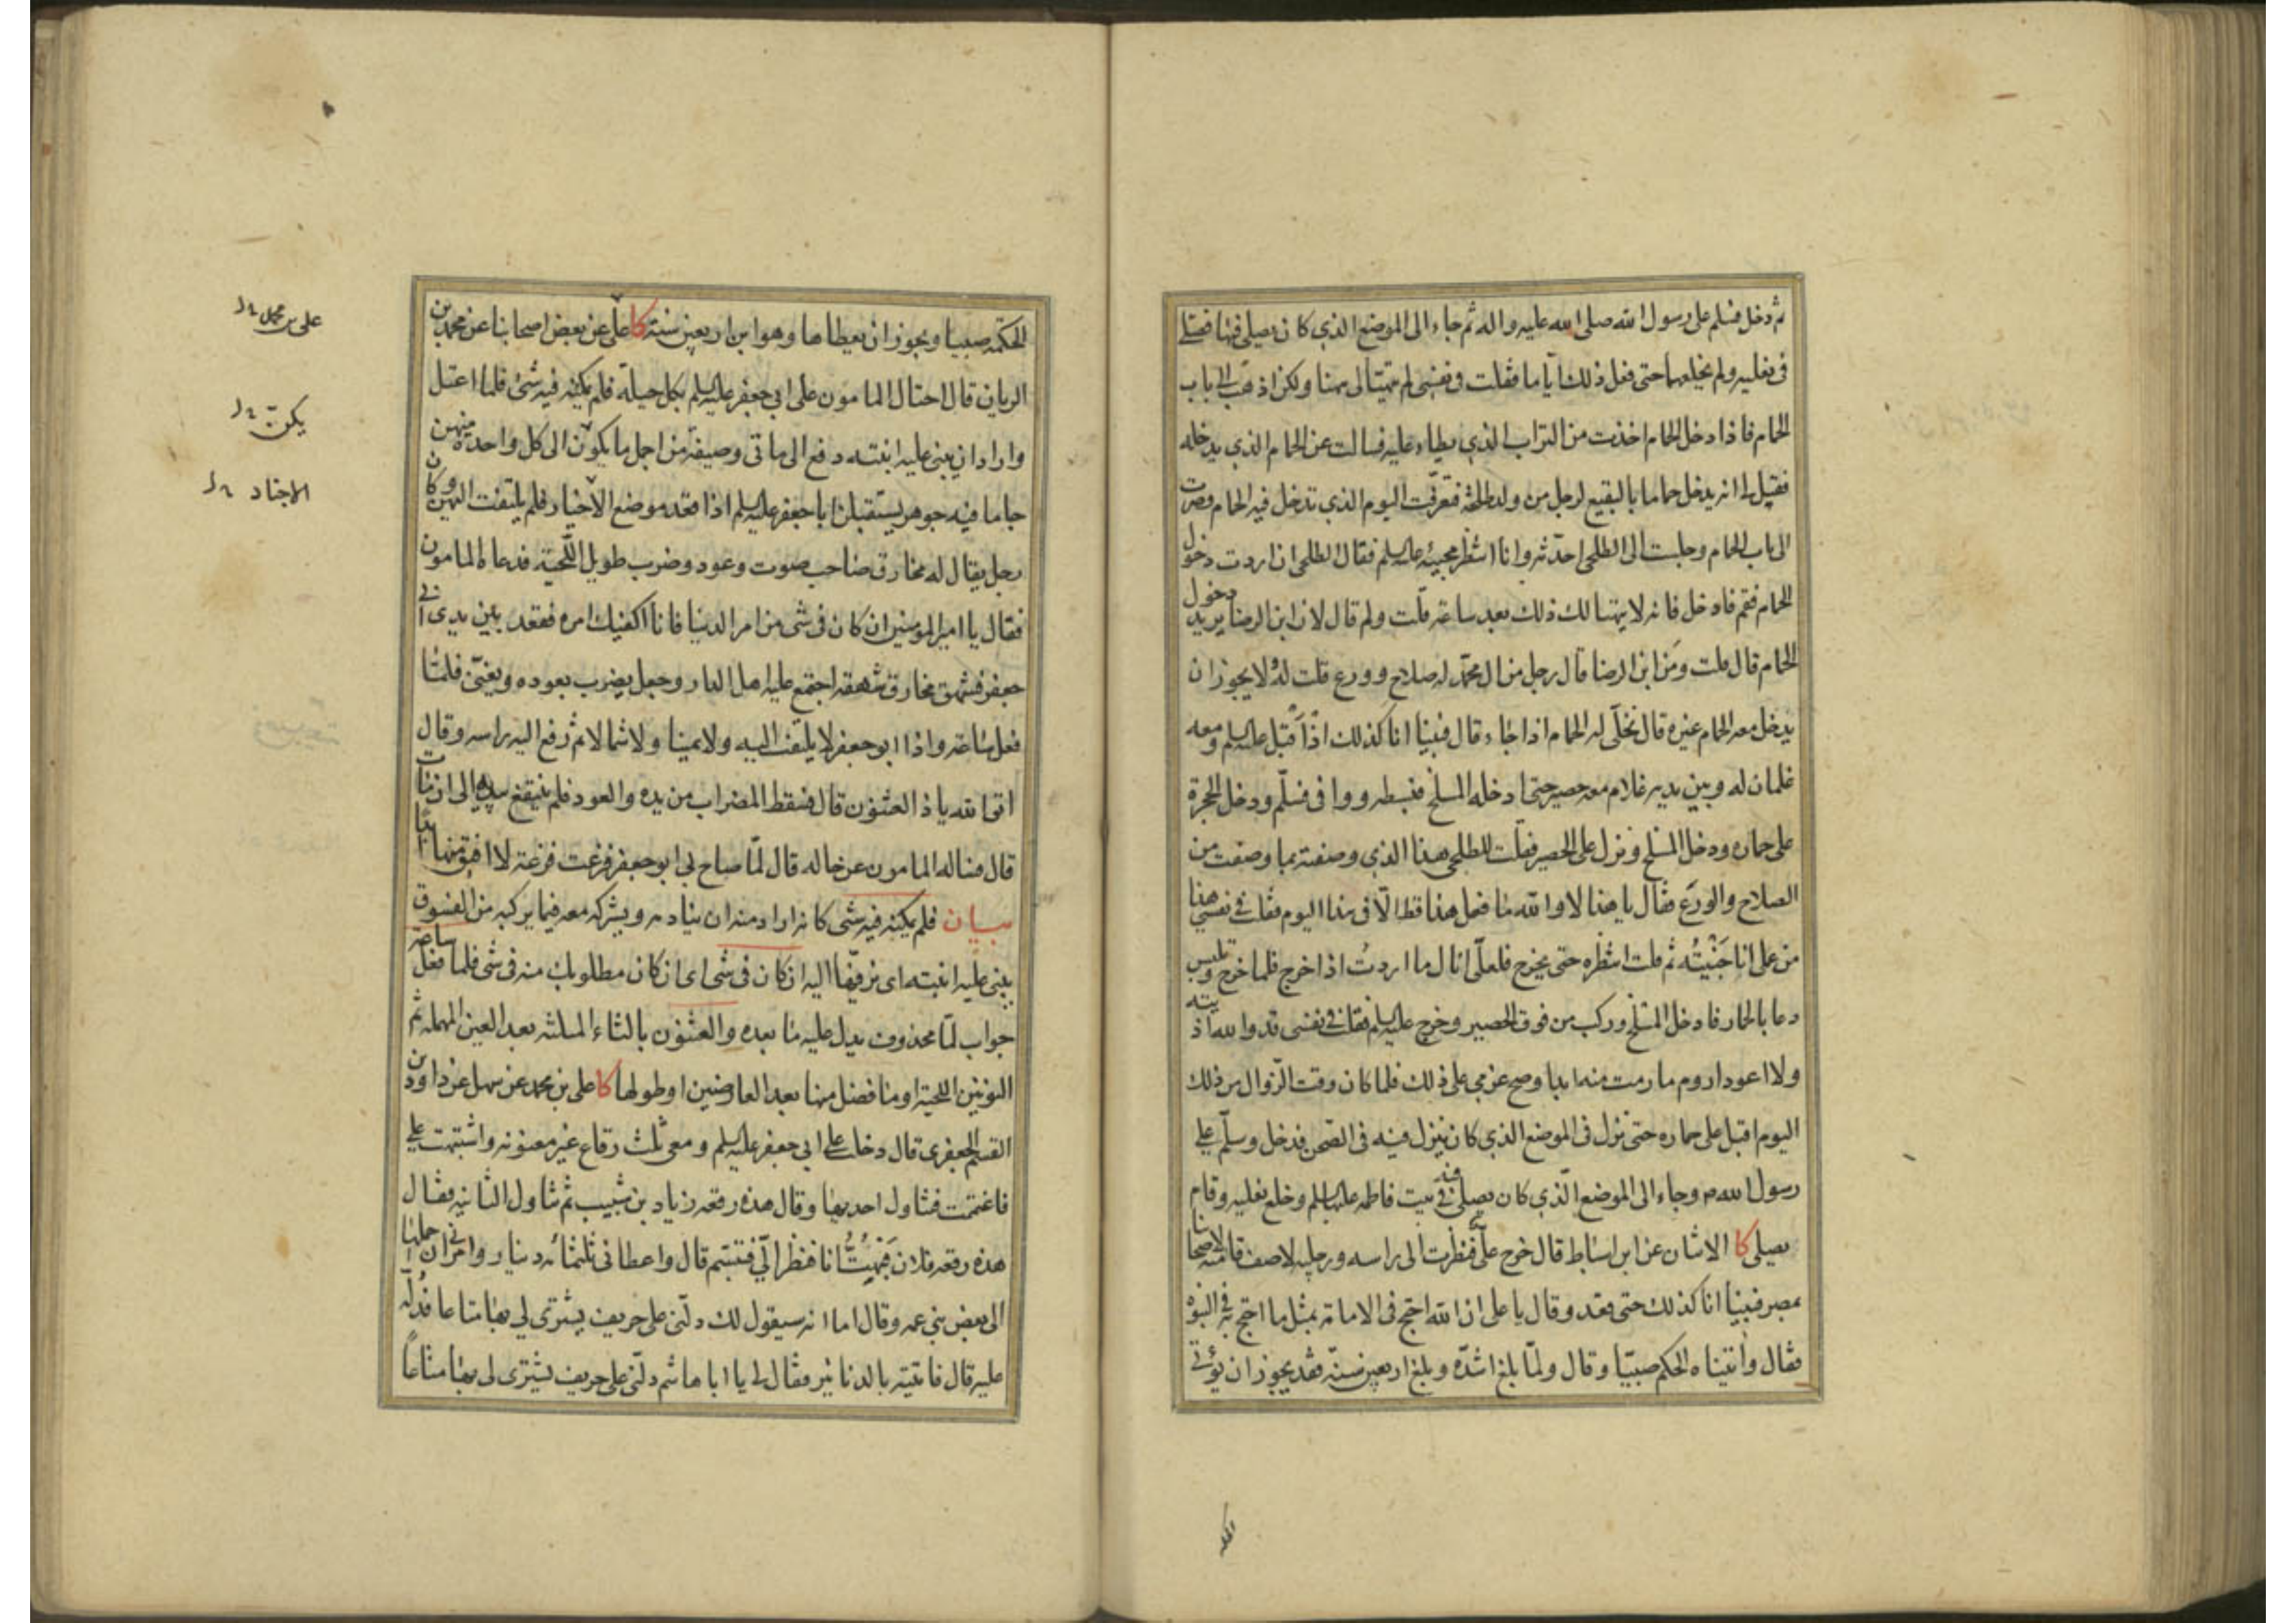 ثم دخل فسلم على رسول الله صلى الله عليه واله ثم جاء الى الموضع الذي كان يصلي فيه فصلى
في نعليه ولم يخلعهما حتى فعل ذلك اياما فقلت في نفسي لم يتهيألي ههنا ولكن اذهب الى باب
الحمام فاذا دخل الحمام اخذت من التراب الذي يطاء عليه فسالت عن الحمام الذي يدخله
فقيل لي انه يدخل حماما بالبقيع لرجل من ولد طلحة فتعرفت اليوم الذي تدخل فيه الحمام وصرت
الى باب الحمام وجلست الى الطلحي احدثه وانا انتظر مجيئه عليه السلم فقال الطلحي ان اردت دخول
الحمام فقم فادخل فانه لا يتهيا لك ذلك بعد ساعة قلت ولم قال لان ابن الرضا يريد دخول
الحمام قال قلت ومن ابن الرضا قال رجل من ال محمد له صلاح وورع قلت له ولا يجوز ان
يدخل معه الحمام غيره قال نخلي له الحمام اذا جاء قال فبينا انا كذلك اذ اقبل عليه السلم ومعه
غلمان له وبين يديه غلام معه حصير حتى ادخله المسلخ فبسطه ووافى فسلم ودخل الحجرة
على حماره ودخل المسلخ ونزل على الحصير فقلت للطلحي هذا الذي وصفته بما وصفت من
الصلاح والورع فقال يا هذا لا والله ما فعل هذا قط الا في هذا اليوم فقلت في نفسي هذا
من عملي انا جنيته ثم قلت انتظره حتى يخرج فلعلي انال ما اردت اذا خرج فلما خرج وتلبس
دعا بالحمار فادخل المسلخ وركب من فوق الحصير وخرج عليه السلم فقلت في نفسي قد والله اذيته
ولا اعود اروم ما رمت منه ابدا وصح عزمي على ذلك فلما كان وقت الزوال من ذلك
اليوم اقبل على حماره حتى نزل في الموضع الذي كان ينزل فيه في الصحن فدخل وسلم على
رسول الله ص وجاء الى الموضع الذي كان يصلي فيه في بيت فاطمه عليها السلم وخلع نعليه وقام
يصلي كا الاثنان عن ابن اسباط قال خرج علي فنظرت الى راسه ورجليه لاصف قامته لاصحابنا
بمصر فبينا انا كذلك حتى قعد وقال يا علي ان الله احتج في الامامة بمثل ما احتج به في النبوة
فقال واتيناه الحكم صبيا وقال ولما بلغ اشده وبلغ اربعين سنة فقد يجوز ان يؤتى
الحكمة صبيا ويجوز ان يعطاها وهو ابن اربعين سنة كا علي عن بعض اصحابنا عن محمد بن
الريان قال احتال المامون على ابي جعفر عليه السلم بكل حيلة فلم يمكنه فيه شئ فلما اعتل
واراد ان يبني عليه ابنته دفع الى ماتي وصيفة من اجمل ما يكون الى كل واحدة منهن
جاما فيه جوهر يستقبلن ابا جعفر عليه السلم اذا قعد موضع الاخيار فلم يلتفت اليهن وكان
رجل يقال له مخارق صاحب صوت وعود وضرب طويل اللحية فدعاه المامون
فقال يا امير المومنين ان كان في شئ من امر الدنيا فانا اكفيك امره فقعد بين يدي ابي
جعفر فشهق مخارق شهقة اجتمع عليه اهل الدار وجعل يضرب بعوده ويغني فلما
فعل ساعة واذا ابو جعفر لا يلتفت اليه ولا يمينا ولا شمالا ثم رفع اليه راسه وقال
اتق الله يا ذا العثنون قال فسقط المضراب من يده والعود فلم ينتفع بيديه الى ان مات
قال فساله المامون عن حاله قال لما صاح بي ابو جعفر فزعت فزعة لا افيق منها ابدا
بيان فلم يمكنه فيه شئ كانه اراد منه ان ينادمه ويشركه معه فيما يركبه من الفسوق
يبني عليه ابنته اى يزفها اليه ان كان في شئ اى ان كان مطلوبك منه في شئ فلما فعل ساعة
جواب لما محذوف يدل عليه ما بعده والعثنون بالثاء المثلثه بعد العين المهمله ثم
النونين اللحية او ما فضل منها بعد العارضين او طولها كا علي بن محمد عن سهل عن داود بن
القسم الجعفري قال دخلت على ابي جعفر عليه السلم ومعي ثلث رقاع غير معنونة واشتبهت علي
فاغتممت فتناول احديهما وقال هذه رقعه زياد بن شبيب ثم تناول الثانية فقال
هذه رقعة فلان فبهت انا فنظر الي فتبسم قال واعطاني ثلثمائة دينار وامرني ان احملها
الى بعض بني عمه وقال اما انه سيقول لك دلني على حريف يشتري لي بها متاعا فدله
عليه قال فاتيته بالدنانير فقال لي يا ابا هاشم دلني على حريف يشتري لي بها متاعا
علي بن محمد
يكن
الاجناد